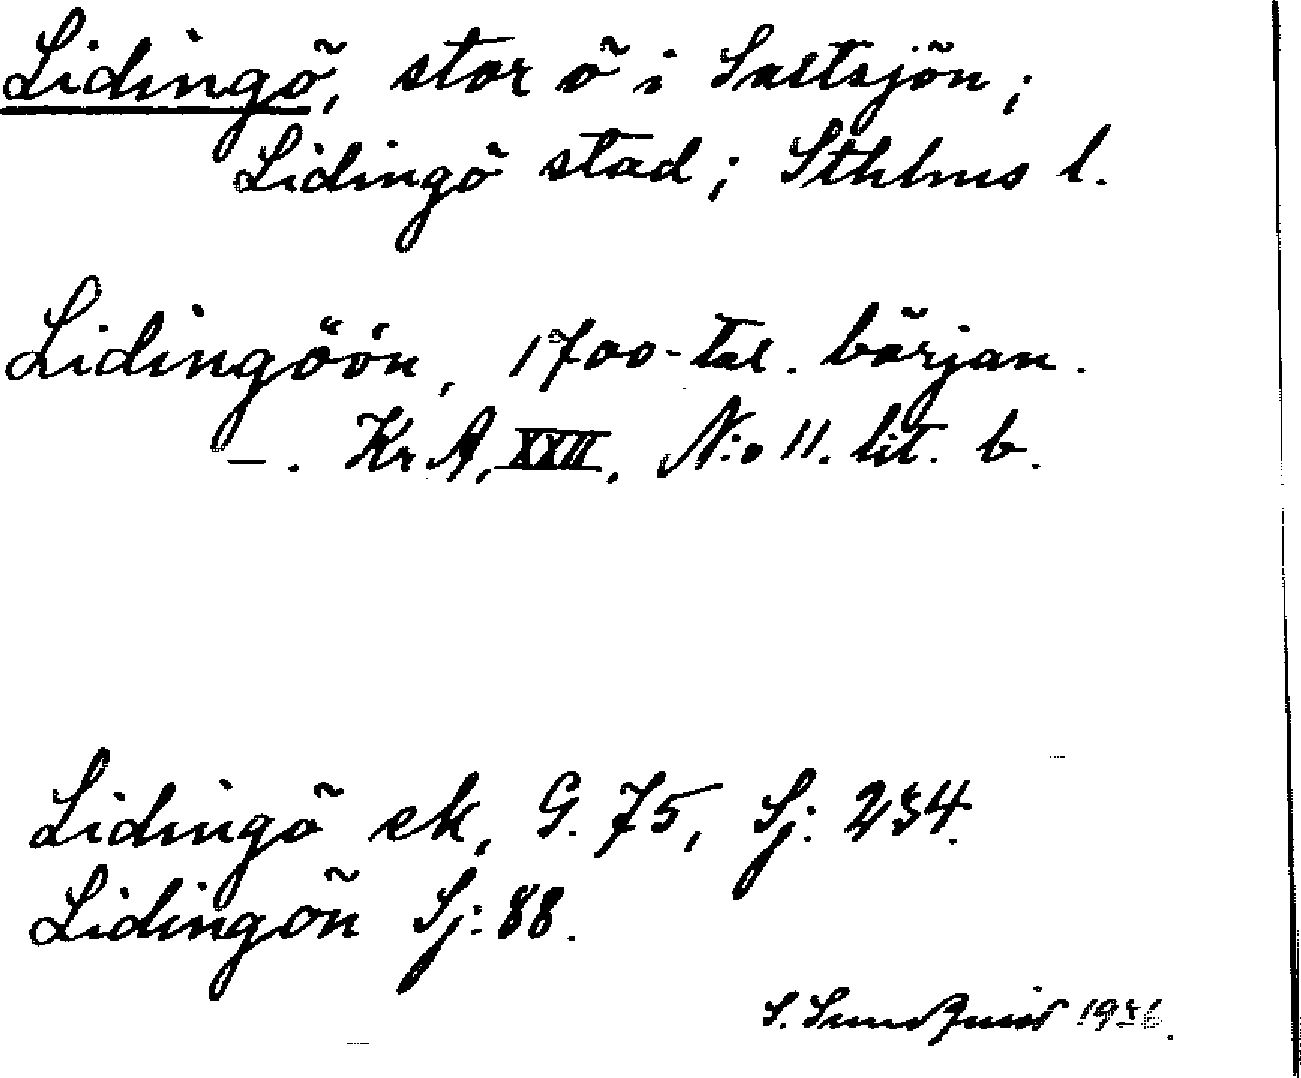 Lidingö, stor ö i Saltsjön;
Lidingö stad; Sthlms l.
Lidingöön, 1700-tal. början.
—. Kr A, XXII, N:o 11. lit. b.
Lidingö sk, G. 75, Sj: 234.
Lidingön Sj: 88.
S. Sundquist 1936.